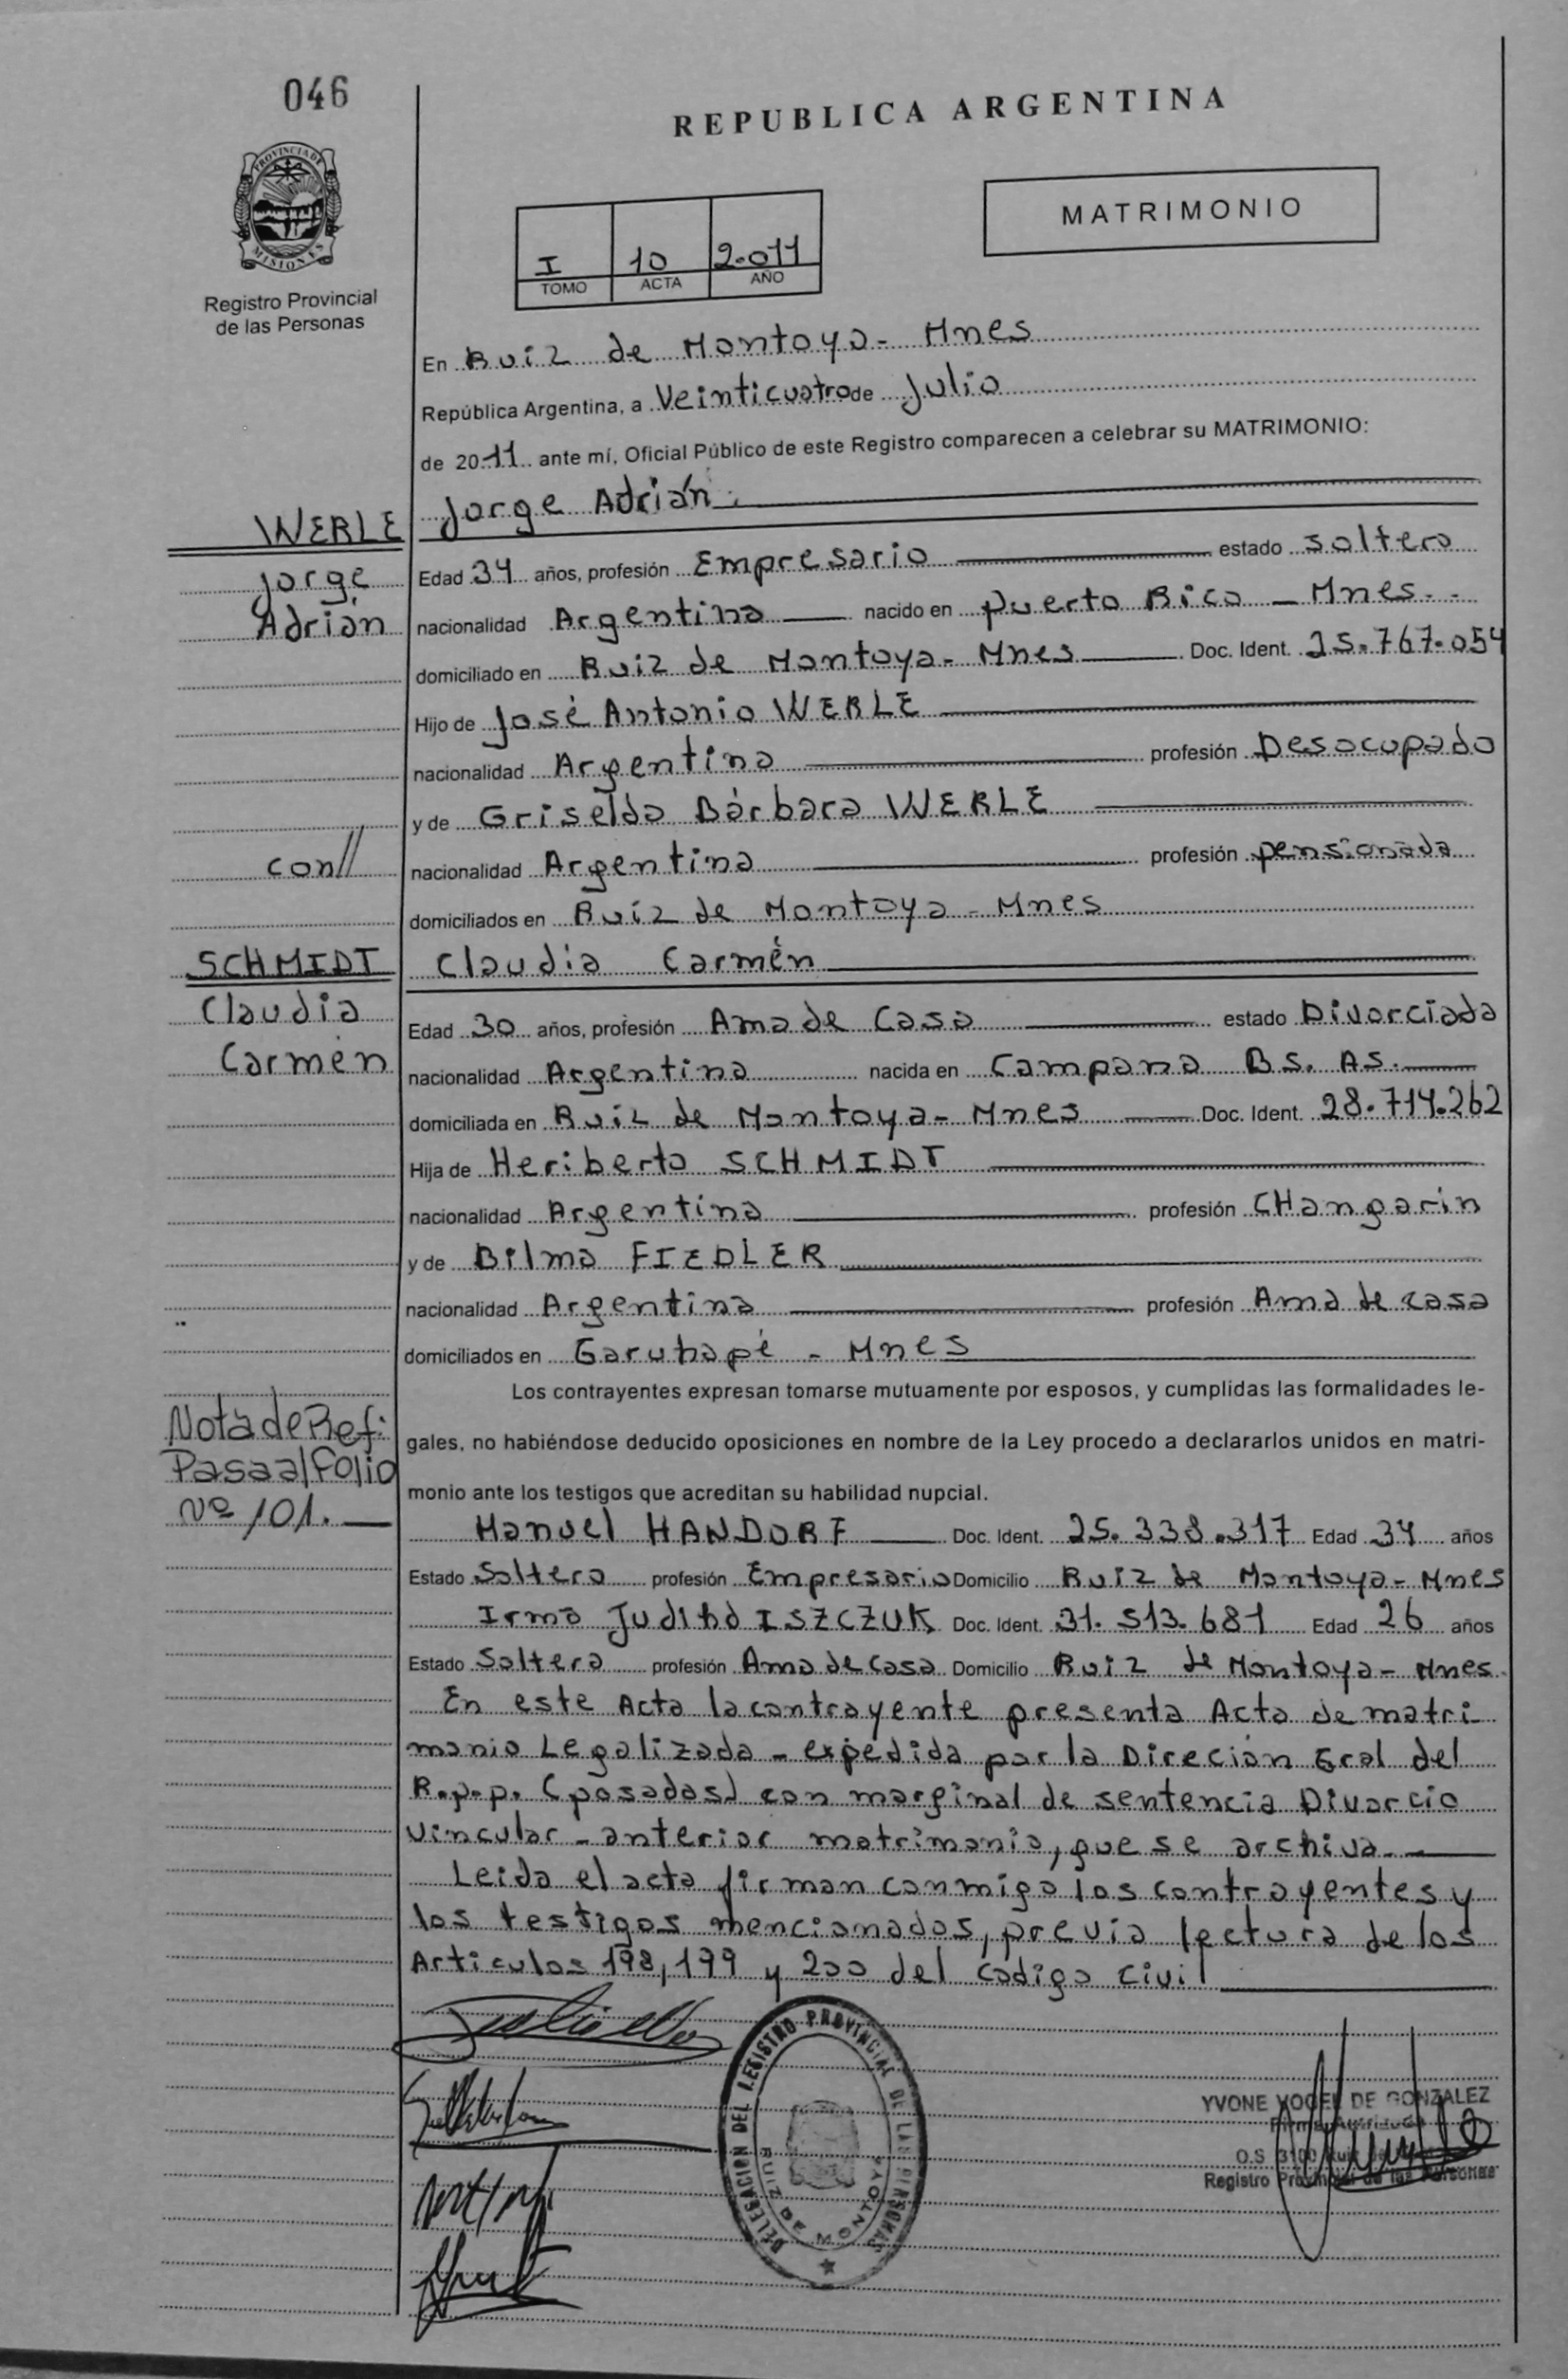 046
REPUBLICA ARGENTINA
PROVINCIA DE
MISIONES
Registro Provincial
de las Personas
MATRIMONIO
I 10 2.011
TOMO ACTA AÑO
En Ruiz de Montoya - Mnes
República Argentina, a Veinticuatro de Julio
de 2011 ante mí, Oficial Público de este Registro comparecen a celebrar su MATRIMONIO:
WERLE Jorge Adrián
Jorge Edad 34 años, profesión Empresario estado soltero
Adrián nacionalidad Argentina nacido en puerto Rico - Mnes.
domiciliado en Ruiz de Montoya - Mnes Doc. Ident. 25.767.054
Hijo de José Antonio WERLE
nacionalidad Argentina profesión Desocupado
y de Griselda Bárbara WERLE
con// nacionalidad Argentina profesión pensionada
domiciliados en Ruíz de Montoya - Mnes
SCHMIDT Claudia Carmén
Claudia Edad 30 años, profesión Ama de Casa estado Divorciada
Carmén nacionalidad Argentina nacida en Campana BS. AS.
domiciliada en Ruiz de Montoya - Mnes Doc. Ident. 28.714.262
Hija de Heriberto SCHMIDT
nacionalidad Argentina profesión CHangarin
y de Bilma FIEDLER
nacionalidad Argentina profesión Ama de casa
domiciliados en Garuhapé - Mnes
Los contrayentes expresan tomarse mutuamente por esposos, y cumplidas las formalidades le-
Nota de Ref: gales, no habiéndose deducido oposiciones en nombre de la Ley procedo a declararlos unidos en matri-
Pasa al Folio monio ante los testigos que acreditan su habilidad nupcial.
Nº 101. Manuel HANDORF Doc. Ident. 25.338.317 Edad 34 años
Estado Soltero profesión Empresario Domicilio Ruiz de Montoya - Mnes
Irma Judihd ISZCZUK Doc. Ident. 31.513.681 Edad 26 años
Estado Soltera profesión Ama de Casa Domicilio Ruiz de Montoya - Mnes.
En este Acta la contrayente presenta Acta de matri
monio Legalizada - expedida por la Direción Gral del
R.p.p. (posadas) con marginal de sentencia Divorcio
vincular - anterior matrimonio, que se archiva.
Leida el acta firman conmigo los contrayentes y
los testigos mencionados, previa lectura de los
Articulos 198, 199 y 200 del Codigo Civil
DELEGACION DEL REGISTRO PROVINCIAL DE LAS PERSONAS
RUIZ DE MONTOYA
YVONE VOGEL DE GONZALEZ
O.S 3100
Registro Provincial de las Personas